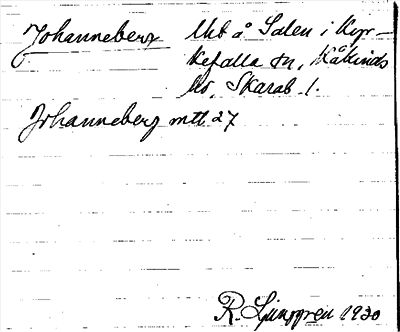 Johanneberg Utt å Salen i Kyr-
kefalla sn, Kåkinds
hd, Skarab. l.
Johanneberg mtl 27
R. Ljunggren 1930